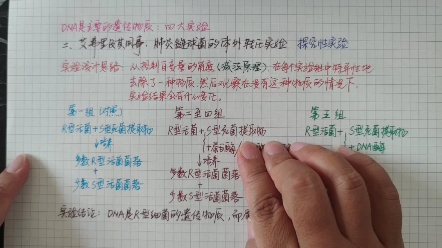 DNA是主要的遗传物质: 四大实验
二、艾弗里及其同事: 肺炎链球菌的体外转化实验 探究性实验
实验设计思路: 从控制自变量的角度(减法原理), 在每个实验组中特异性地
去除了一种物质, 然后观察在没有这种物质的情况下,
实验结果会有什么变化。
第一组(对照) 第二至四组 第五组
R型活菌+S型细菌提取物 R型活菌+S型细菌提取物 R型活菌+S型细菌提取物
↓培养 +蛋白酶/ +DNA酶
多数R型活菌菌落 ↓培养
+ 多数R型活菌菌落
多数S型活菌菌落 +
多数S型活菌菌落
实验结论: DNA是R型细菌的遗传物质,